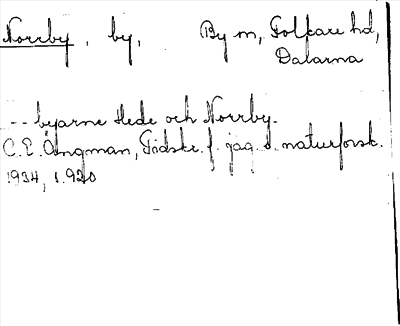 Norrby, by, By sn, Folkare hd,
Dalarna
-- byarne Hede och Norrby.
C.E. Ångman, Tidskr. f. jag. o. naturforsk.
1934, s. 920